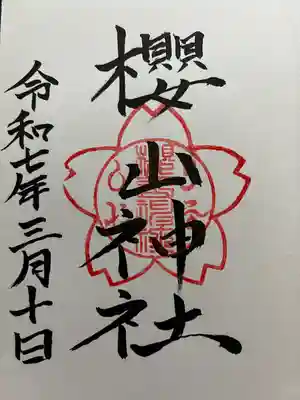 櫻山神社
令和七年三月十日